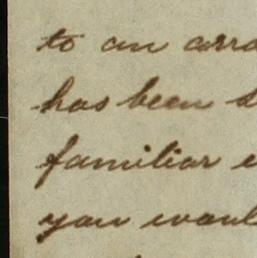 to an arra
has been s
familiar e
you woul